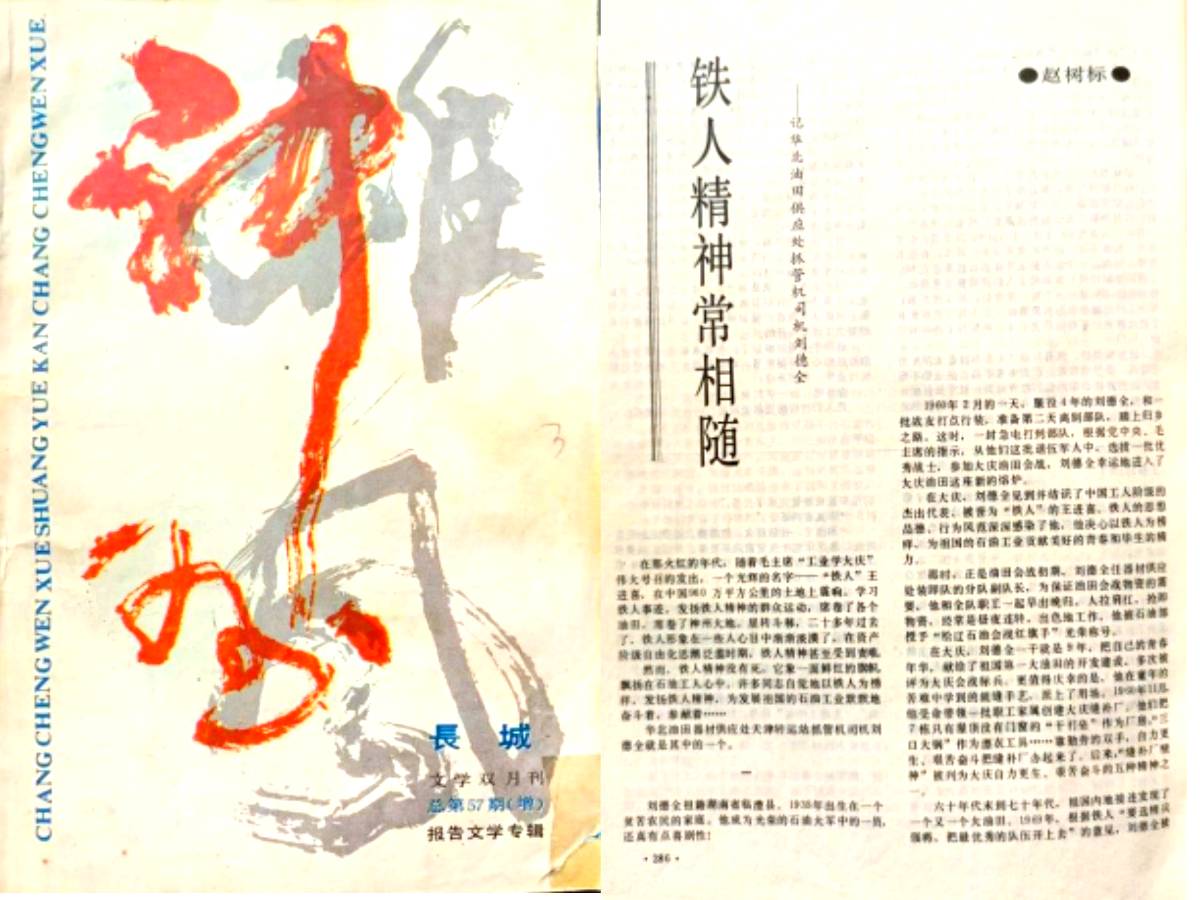 CHANG CHENG WEN XUE SHUANG YUE KAN CHANG CHENG WEN XUE
雄风
神州
長城
文学双月刊
总第57期(增)
报告文学专辑
铁人精神常相随
——记华北油田供应处抓管机司机刘德全
●赵树标●
在那火红的年代,随着毛主席“工业学大庆”
伟大号召的发出,一个光辉的名字——“铁人”王
进喜,在中国960万平方公里的土地上震响。学习
铁人事迹,发扬铁人精神的群众运动,席卷了各个
油田,席卷了神州大地。星转斗移,二十多年过去
了,铁人形象在一些人心目中渐渐淡漠了,在资产
阶级自由化思潮泛滥时期,铁人精神甚至受到责难。
然而,铁人精神没有死。它象一面鲜红的旗帜,
飘扬在石油工人心中。许多同志自觉地以铁人为榜
样,发扬铁人精神,为发展祖国的石油工业默默地
奋斗着,奉献着……
华北油田器材供应处天津转运站抓管机司机刘
德全就是其中的一个。
一
刘德全祖籍湖南省临澧县,1938年出生在一个
贫苦农民的家庭。他成为光荣的石油大军中的一员,
还真有点喜剧性!
·286·
1960年2月的一天,服役4年的刘德全,和一
批战友打点行装,准备第二天离别部队,踏上归乡
之路。这时,一封急电打到部队,根据党中央、毛
主席的指示,从他们这批退伍军人中,选拔一批优
秀战士,参加大庆油田会战,刘德全幸运地进入了
大庆油田这座新的熔炉。
在大庆,刘德全见到并结识了中国工人阶级的
杰出代表,被誉为“铁人”的王进喜。铁人的思想
品德、行为风范深深感染了他,他决心以铁人为榜
样,为祖国的石油工业贡献美好的青春和毕生的精
力。
那时,正是油田会战初期,刘德全任器材供应
处装卸队的分队副队长,为保证油田会战物资的需
要,他和全队职工一起早出晚归,人拉肩扛,抢卸
物资,经常是昼夜连轴,出色地工作,他被石油部
授予“松辽石油会战红旗手”光荣称号。
在大庆,刘德全一干就是9年,把自己的青春
年华,献给了祖国第一大油田的开发建设,多次被
评为大庆会战标兵。更值得庆幸的是,他在童年的
苦难中学到的裁缝手艺,派上了用场。1960年11月,
他受命带领一批职工家属创建大庆缝补厂。他们把
7栋只有屋顶没有门窗的“干打垒”作为厂房,“三
口大锅”作为漂衣工具……靠勤劳的双手,自力更
生、艰苦奋斗把缝补厂办起来了。后来,“缝补厂精
神”被列为大庆自力更生、艰苦奋斗的五种精神之
一。
六十年代末到七十年代,祖国内地接连发现了
一个又一个大油田。1969年,根据铁人“要选精兵
强将,把最优秀的队伍开上去”的意见,刘德全被